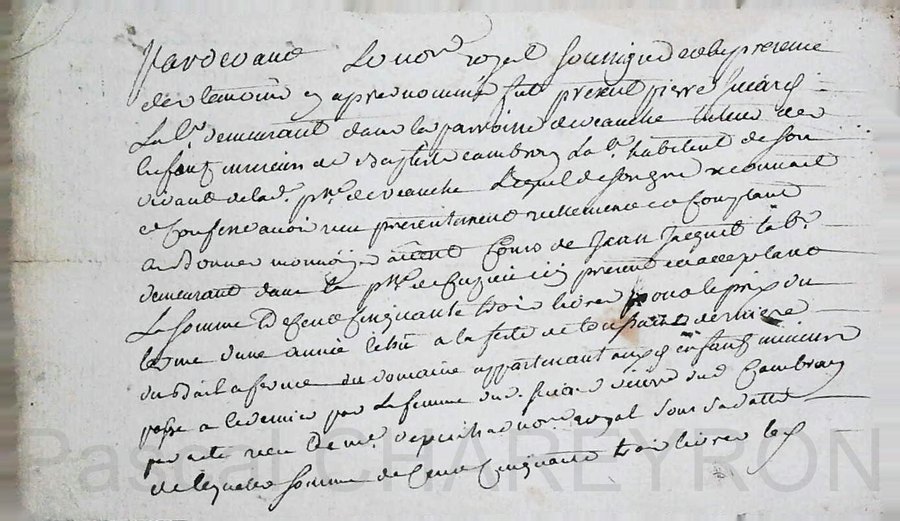 Pardevant Le nore royal soussigné et en la presence
des temoins cy apres nommés fut present pierre
La.br demeurant dans la parroisse de veauche tuteur des
enfans mineurs de La.br habitant de son
vivant de lad. psse de veauche Lequel de son gre reconnait
et confesse avoir reçu presentement reellement et comptant
en bonne monnoie ayant Cours de Jean Jacquet La.br
demeurant dans la psse de Cuzieu icy present et acceptant
La somme De Cent Cinquante trois livres pour le prix du
terme d'une année échu a la feste de toussaint derniere
du Bail a ferme du domaine appartenant auxd enfans mineurs
passé a ce dernier par La femme dud. veuve dud Cambray
par acte reçu De me. nore royal sous sa datte
de laquelle somme de Cent Cinquante trois livres led
Pascal CHAREYRON